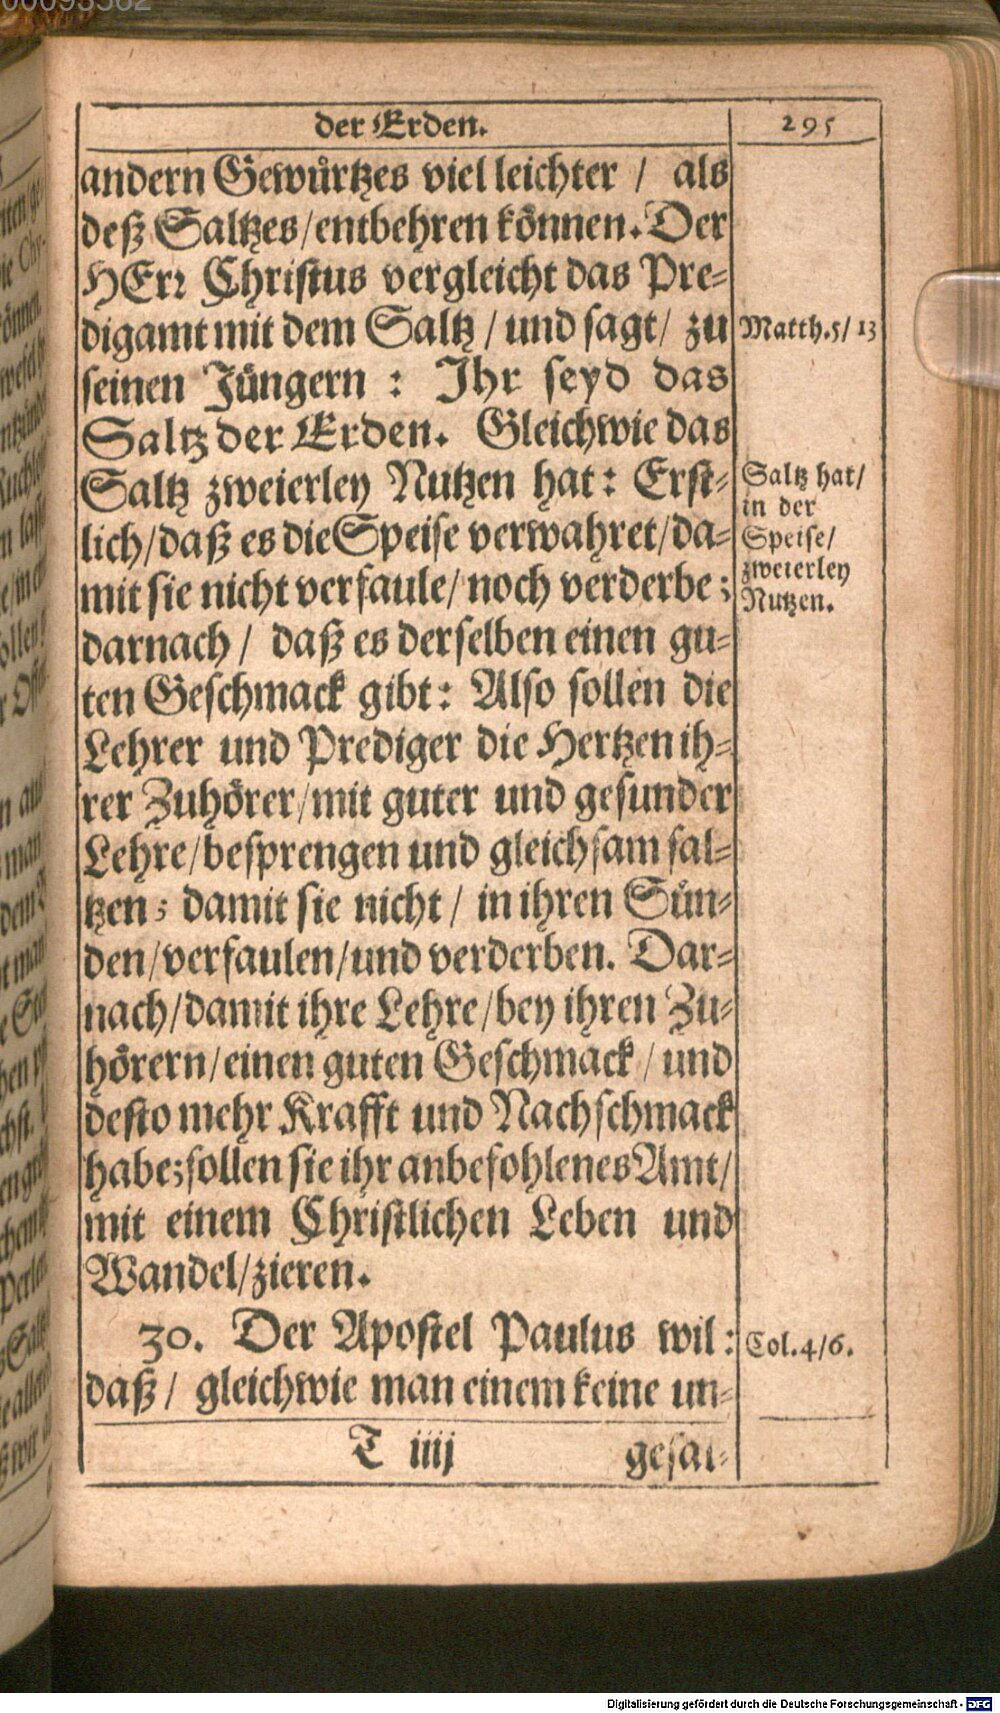 der Erden.
295
andern Gewürtzes viel leichter / als
deß Saltzes/entbehren können. Der
HErr Christus vergleicht das Pre-
digamt mit dem Saltz / und sagt/ zu
Matth.5/13
seinen Jüngern : Ihr seyd das
Saltz der Erden. Gleichwie das
Saltz zweierley Nutzen hat: Erst-
lich/daß es die Speise verwahret/da-
mit sie nicht verfaule/noch verderbe;
Saltz hat/
in der
Speise/
zweierley
Nutzen.
darnach / daß es derselben einen gu-
ten Geschmack gibt: Also sollen die
Lehrer und Prediger die Hertzen ih-
rer Zuhörer/mit guter und gesunder
Lehre/besprengen und gleichsam sal-
tzen; damit sie nicht / in ihren Sün-
den/verfaulen/und verderben. Dar-
nach/damit ihre Lehre/bey ihren Zu-
hörern/einen guten Geschmack / und
desto mehr Krafft und Nachschmack
habe;sollen sie ihr anbefohlenes Amt/
mit einem Christlichen Leben und
Wandel/zieren.
30. Der Apostel Paulus wil:
Col.4/6.
daß / gleichwie man einem keine un-
T iiij
gesal-
Digitalisierung gefördert durch die Deutsche Forschungsgemeinschaft - DFG